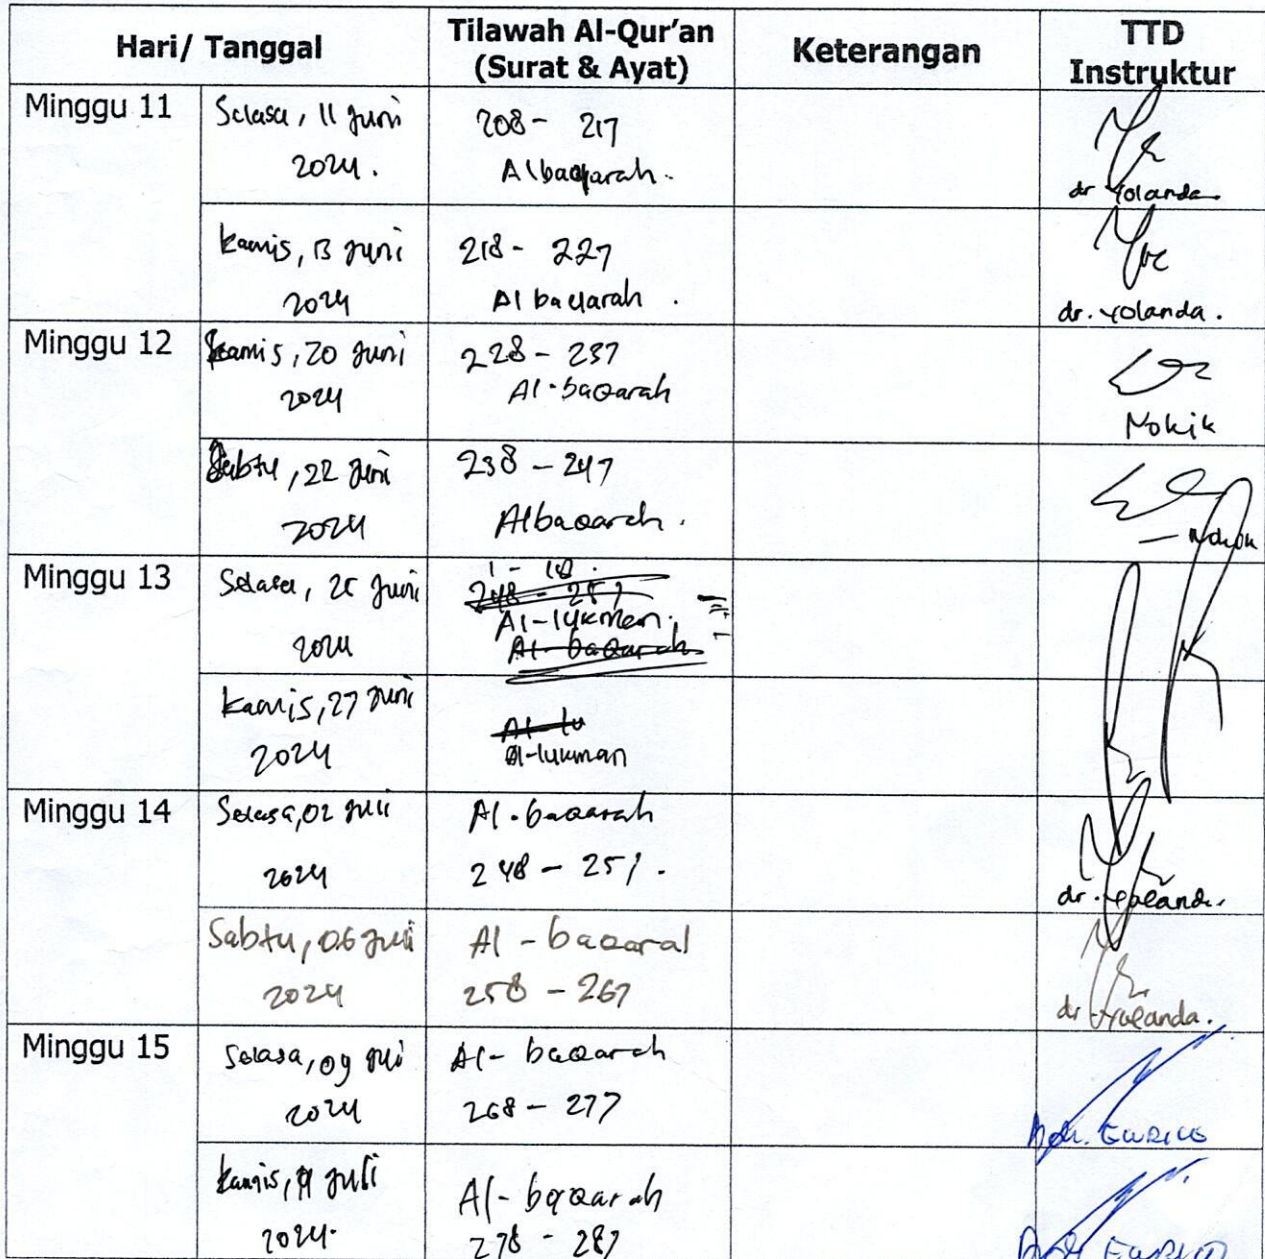 Hari/ Tanggal
Tilawah Al-Qur'an
(Surat & Ayat)
Keterangan
TTD
Instruktur
Minggu 11
Selasa, 11 Juni
2024.
208 - 217
Albaqarah.
dr Yolanda.
Kamis, 13 Juni
2024
218 - 227
Albaqarah .
dr. Yolanda.
Minggu 12
Kamis, 20 Juni
2024
228 - 237
Al-baqarah
Nokik
Sabtu, 22 Juni
2024
238 - 247
Albaqarah.
Minggu 13
Selasa, 25 Juni
2024
1 - 10.
248 - 257
Al-lukman.
Al-baqarah
Kamis, 27 Juni
2024
Al-lu
Al-lukman
Minggu 14
Selasa, 02 Juli
2024
Al-baqarah
248 - 257.
dr. Yolanda.
Sabtu, 06 Juli
2024
Al-baqaral
258 - 267
dr Yolanda.
Minggu 15
Selasa, 09 Juli
2024
Al-baqarah
268 - 277
Kamis, 11 Juli
2024.
Al-baqarah
278 - 287